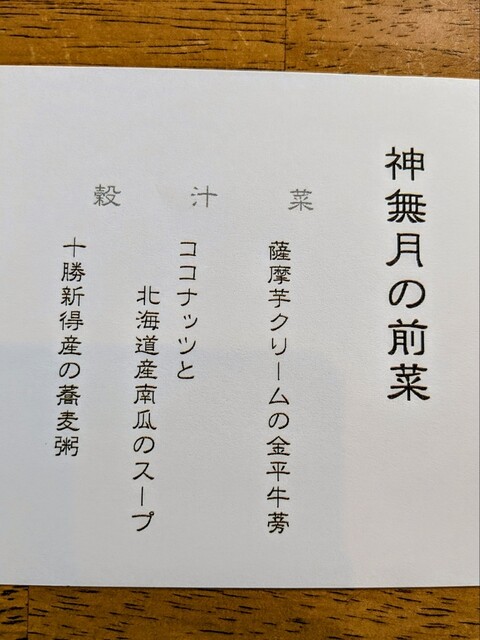 神無月の前菜
菜
薩摩芋クリームの金平牛蒡
汁
ココナッツと
北海道産南瓜のスープ
穀
十勝新得産の蕎麦粥